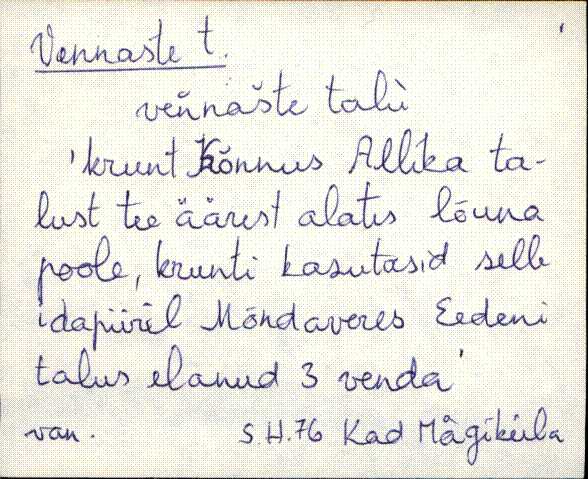 Vennaste t.
veňnašte talù
'krunt Kõnnus Allika ta-
lust tee äärest alates lõuna
poole, krunti kasutasid selle
idapiiril Mõndaveres Eedeni
talus elanud 3 venda'
van. S.H.76 Kad Mägiküla